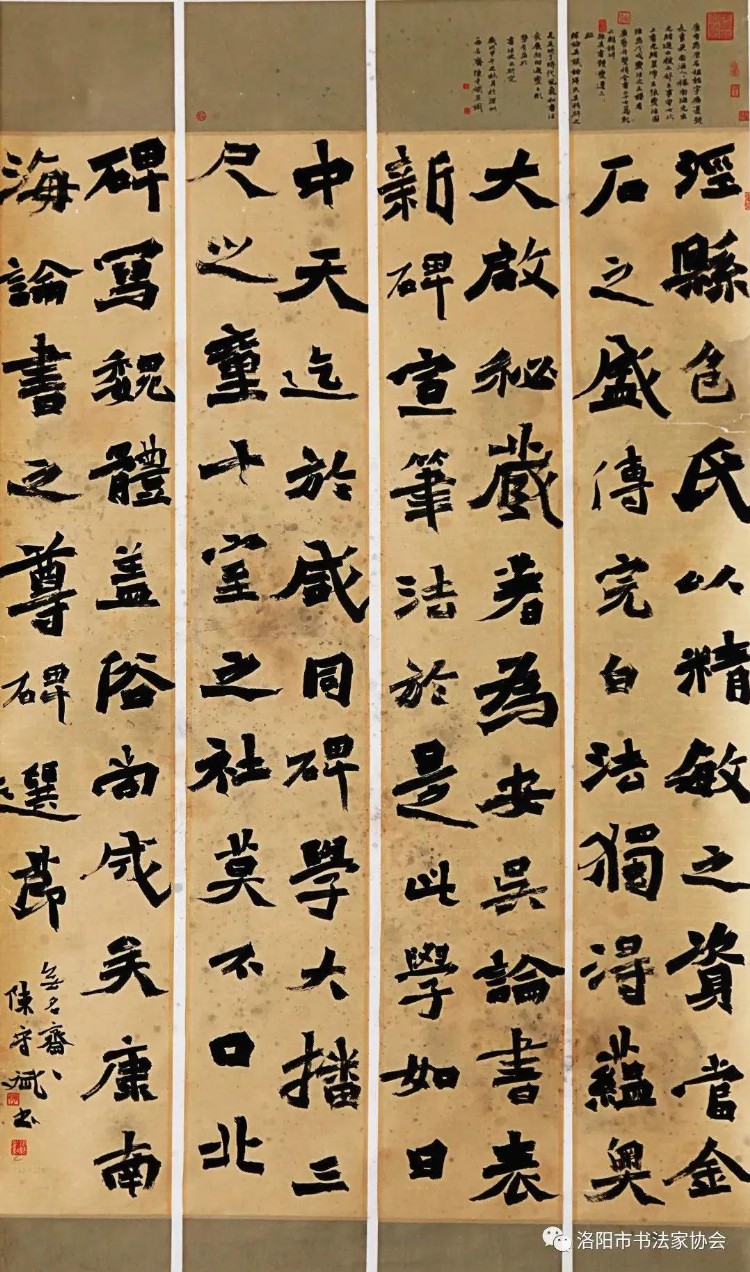 涇縣包氏以精敏之資當金
石之盛傳完白法獨淂蘊奧
大啟秘藏著為安吳論書表
新碑宣筆法於是此學如日
中天迄於咸同碑學大播三
尺之童十室之社莫不口北
碑寫魏體盖俗尚成矣康南
海論書之尊碑選節
無名齋
陳守斌书
洛阳市书法家协会